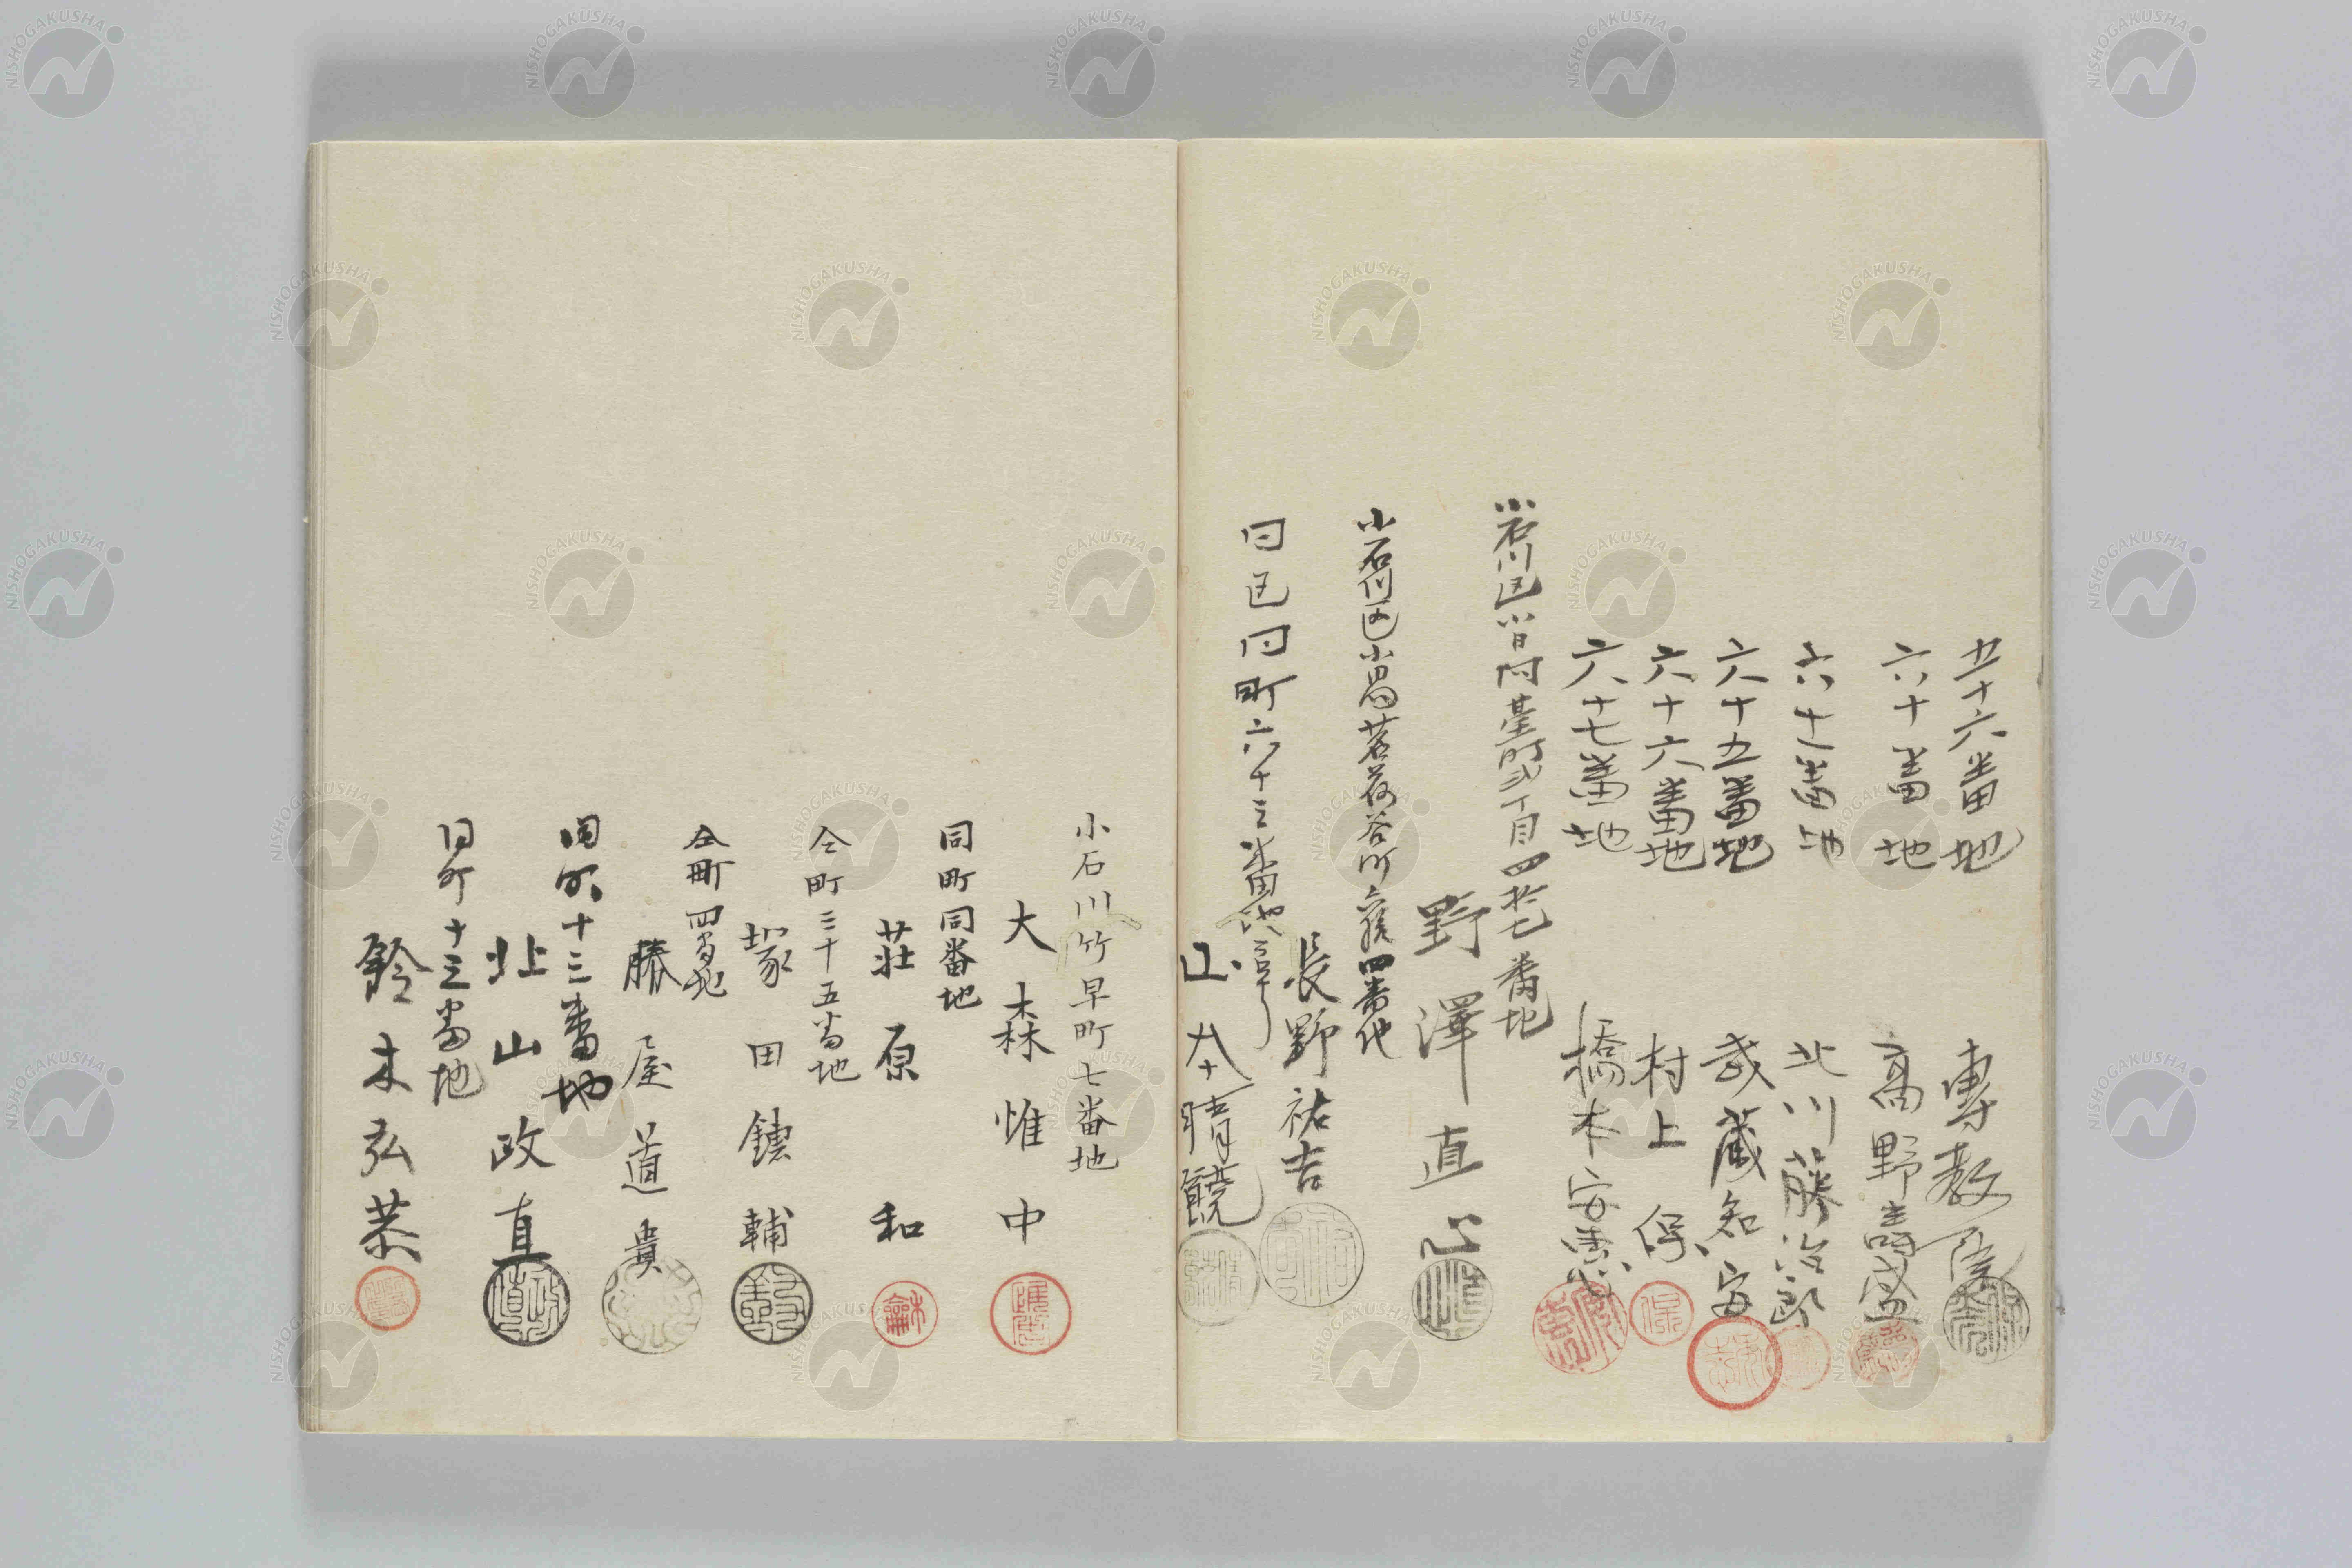 五十六番地
專教院
六十番地
高野壽盛
六十一番地
北川藤次郎
六十五番地
武藏知安
六十六番地
村上保
六十七番地
橋本安憲
小石川区小日向臺町弐丁目四拾七番地
野澤直正
小石川区小日向茗荷谷町六拾四番地
長野祐吉
同区同町六十三番地
晴饒
小石川竹早町七番地
大森惟中
同町同番地
莊原和
仝町三十五番地
塚田鏸輔
仝町四番地
勝屋道貴
同町十三番地
北山政直
同町十三番地
鈴木弘恭
NISHOGAKUSHA